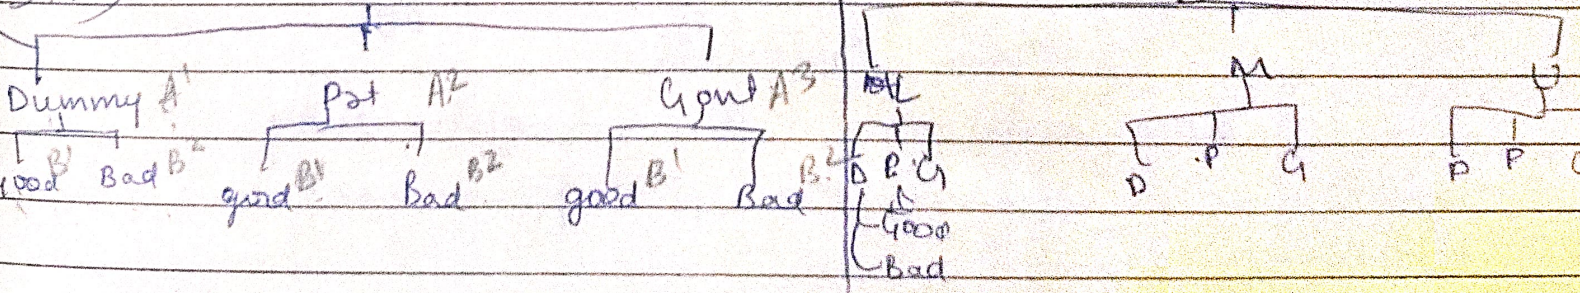 Dummy A1 Pvt A2 Govt A3
Good B1 Bad B2 good B1 Bad B2 good B1 Bad B2
L M U
D P G D P G D P
Good
Bad